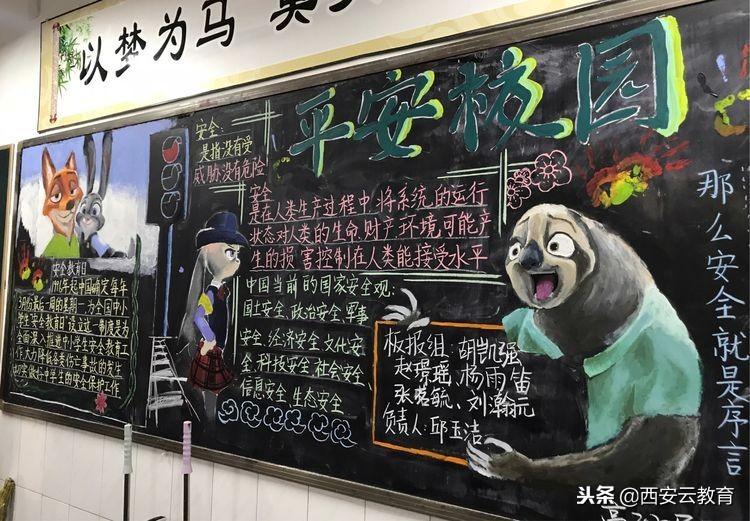 以梦为马
平安校园
安全:
是指没有受
威胁,没有危险
安全
是在人类生产过程中,将系统的运行
状态对人类的生命,财产,环境可能产
生的损害控制在人类能接受水平
中国当前的国家安全观:
国土安全,政治安全,军事
安全,经济安全,文化安
全,科技安全,社会安全,
信息安全,生态安全
安全教育日
1996年起中国确定每年
3月份最后一周的星期一为全国中小
学生"安全教育日"设立这一制度是为
全面深入推进中小学生安全教育工
作大力降低各类伤亡事故的发生
切实做好中小学生的安全保护工作
板报组:胡凯强
赵璟瑶、杨雨笛
张茗毓、刘瀚元
负责人:邱玉洁
那么安全就是序言
头条@西安云教育